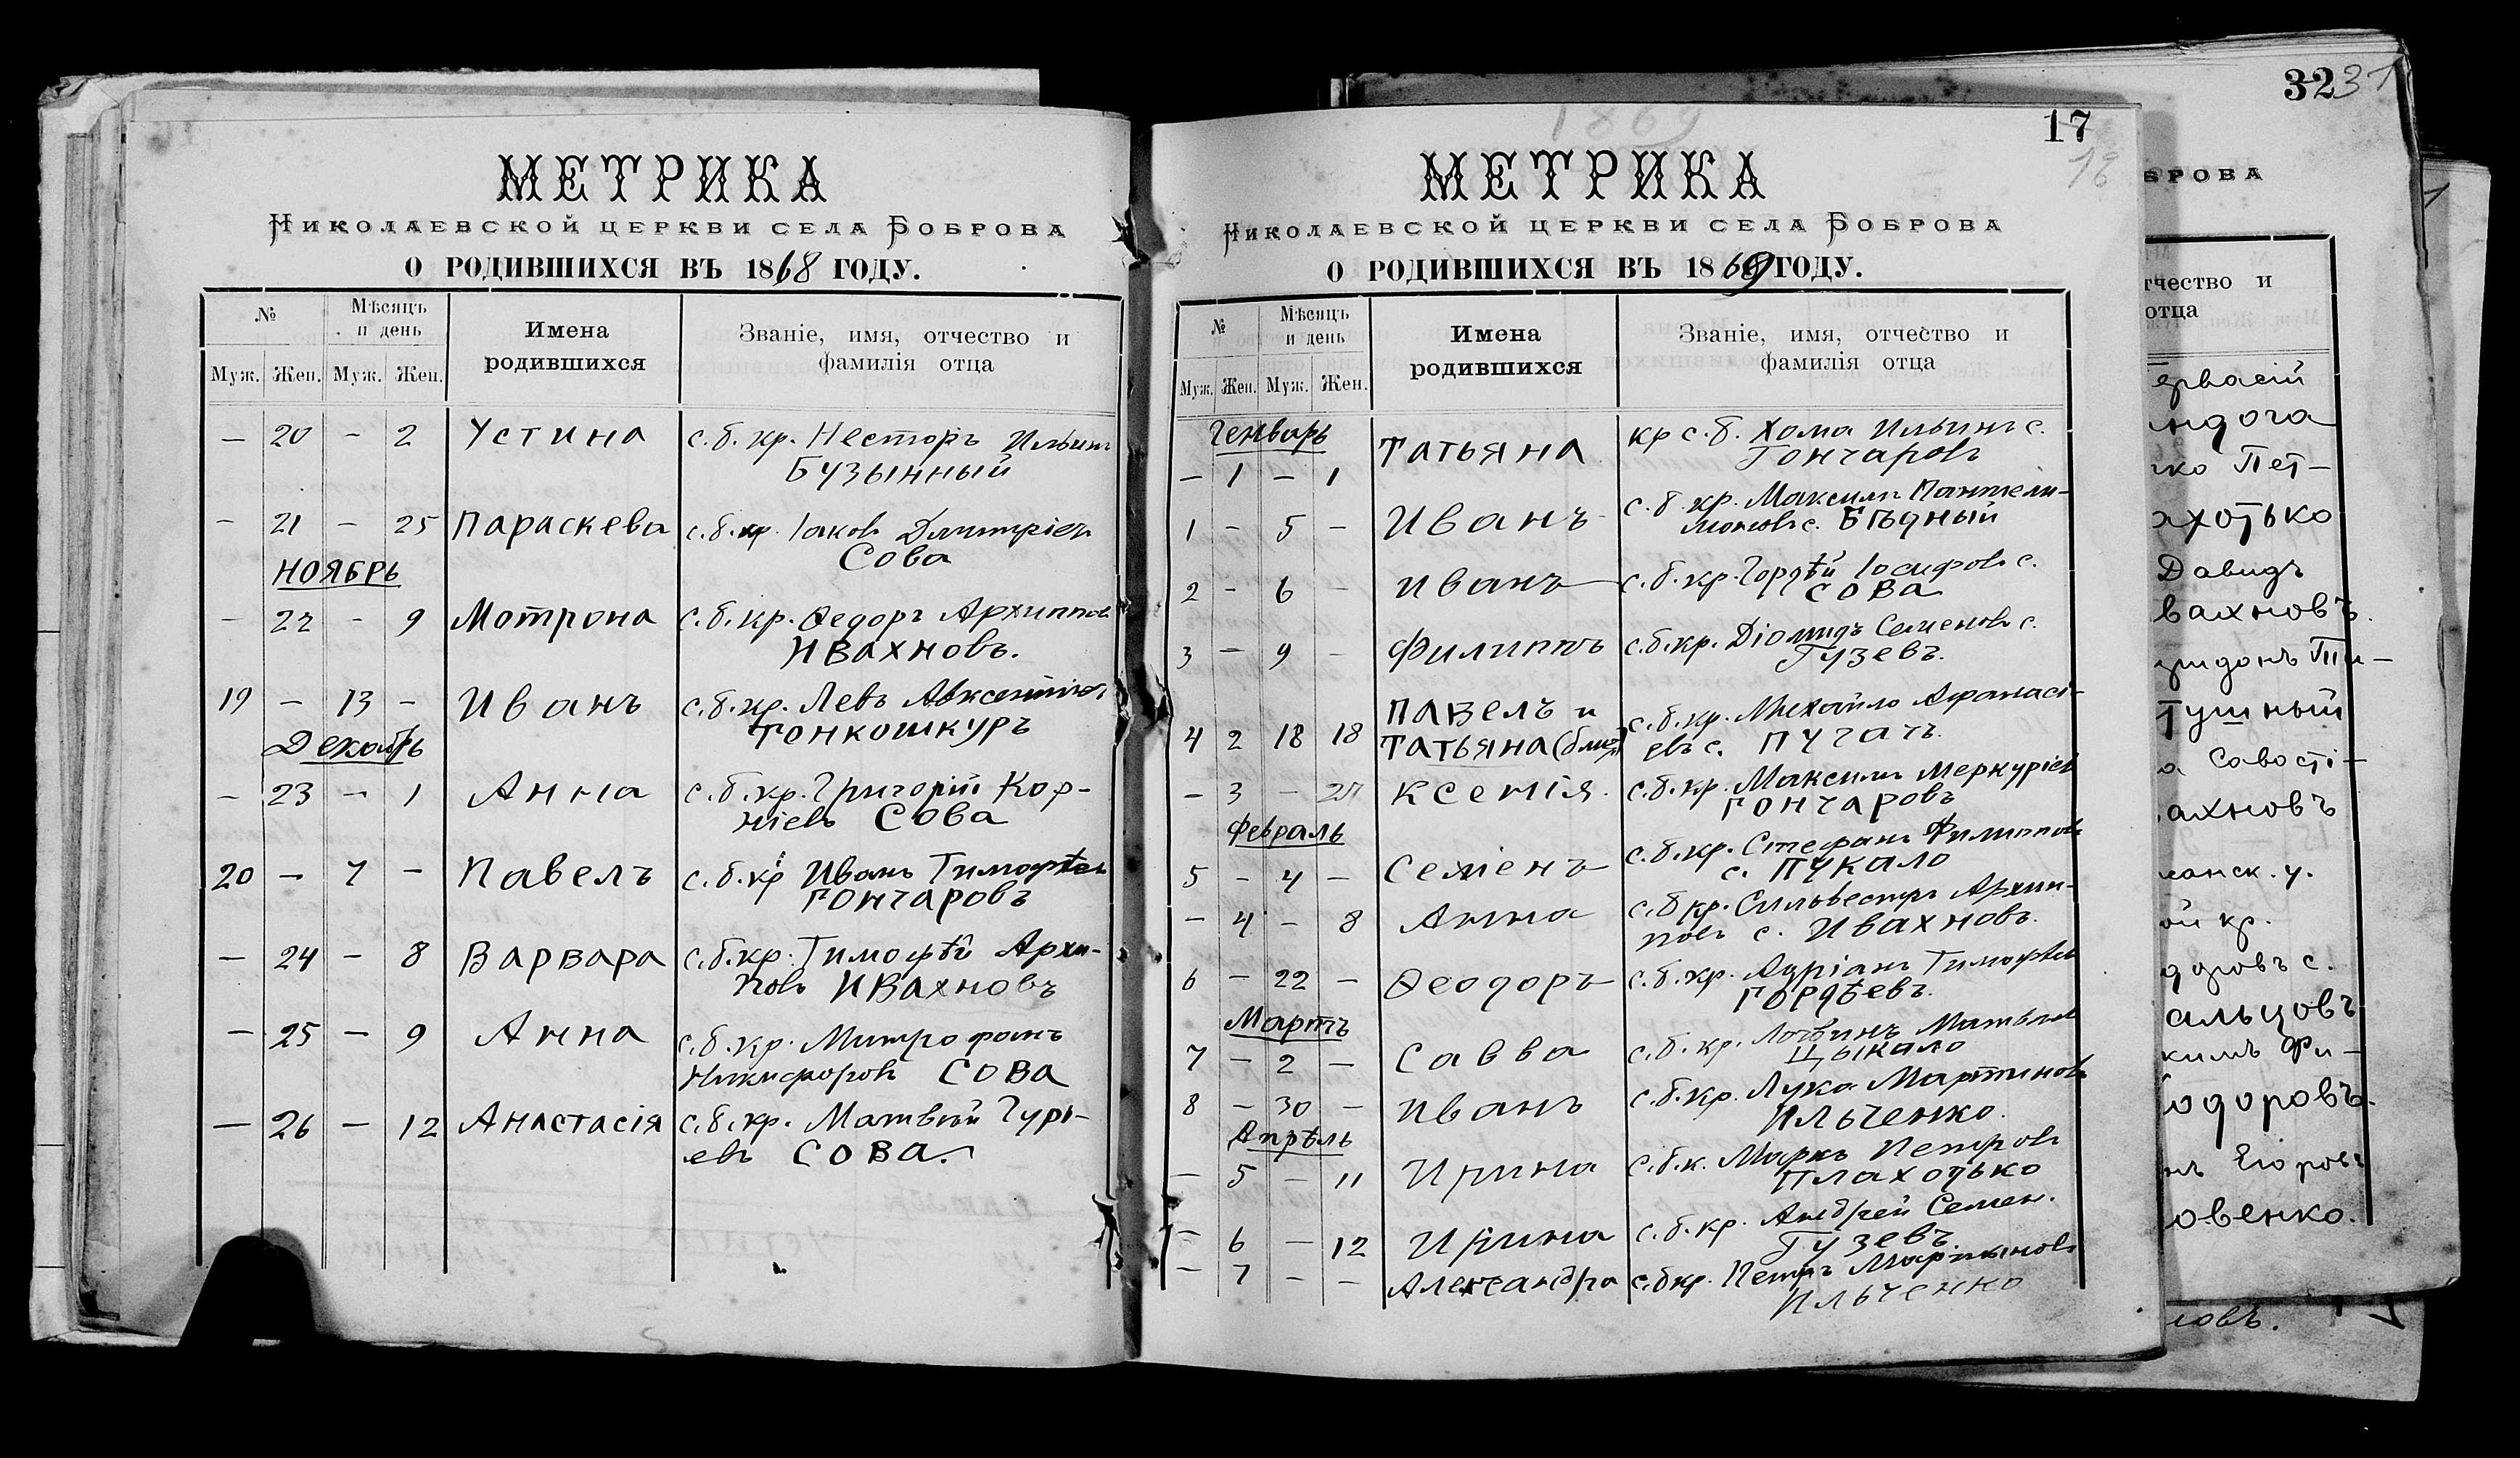 МЕТРИКА
НИКОЛАЕВСКОЙ ЦЕРКВИ СЕЛА БОБРОВА
О РОДИВШИХСЯ ВЪ 1868 ГОДУ.
№ Мѣсяцъ и день Имена родившихся Званіе, имя, отчество и фамилія отца
Муж. Жен. Муж. Жен.
— 20 — 2 Устина с.б.кр. Несторъ Ильинъ
Бузынный
— 21 — 25 Параскева с.б.кр. Іаковъ Дмитріевъ
Сова
НОЯБРЬ
— 22 — 9 Мотрона с.б.кр. Ѳедоръ Архиппов
Ивахновъ.
19 — 13 — Иванъ с.б.кр. Левъ Авксентіевъ
Тонкошкуръ
Декабрь
— 23 — 1 Анна с.б.кр. Григорій Кор-
ніевъ Сова
20 — 7 — Павелъ с.б.кр Иванъ Тимофѣев
Гончаровъ
— 24 — 8 Варвара с.б.кр. Тимофѣй Архи-
повъ Ивахновъ
— 25 — 9 Анна с.б.кр. Митрофанъ
Никифоровъ Сова
— 26 — 12 Анастасія с.б.кр. Матвѣй Гурі-
евъ Сова.
1869
17
18
МЕТРИКА
НИКОЛАЕВСКОЙ ЦЕРКВИ СЕЛА БОБРОВА
О РОДИВШИХСЯ ВЪ 1869 ГОДУ.
№ Мѣсяцъ и день Имена родившихся Званіе, имя, отчество и фамилія отца
Муж. Жен. Муж. Жен.
Генварь
— 1 — 1 Татьяна кр с.б. Хома Ильинъ с.
Гончаровъ
1 — 5 — Иванъ с.б.кр. Максимъ Пантели-
моновъ с. Бѣдный
2 — 6 — Иванъ с.б.кр. Гордѣй Іосифовъ с.
Сова
3 — 9 — Филиппъ с.б.кр. Діомидъ Семеновъ с.
Гузевъ.
4 2 18 18 Павелъ и с.б.кр. Михайло Афанасі-
Татьяна (близ) евъ с. Пугачъ.
— 3 — Ксенія. с.б.кр. Максимъ Меркуріев
Гончаровъ
Февраль
5 — 4 — Семенъ с.б.кр. Стефанъ Филиппов
с. Пукало
— 4 — 8 Анна с.б кр. Сильвестръ Архип-
повъ с. Ивахновъ.
6 — 22 — Ѳеодоръ с.б.кр. Адріанъ Тимофѣев
Гордѣевъ.
Мартъ
7 — 2 — Савва с.б.кр. Логвинъ Матвѣев
Цыкало
8 — 30 — Иванъ с.б.кр. Лука Мартиновъ
Ильченко.
Апрѣль
— 5 — 11 Ирина с.б.к. Маркъ Петровъ
Плахотько
— 6 — 12 Ирина с.б.кр. Андрей Семен.
Гузевъ
— 7 — — Александра с.бкр. Петръ Мартыновъ
Ильченко
32
31
БРОВА
тчество и
отца
ервасій
ндога
ко Пет-
ахотько
Давидъ
вахновъ.
Тушный
Савасті-
ахновъ
манск. у.
ой кр.
доровъ с.
альцовъ
кимъ Фи-
одоровъ.
нъ Егоровъ
овенко.